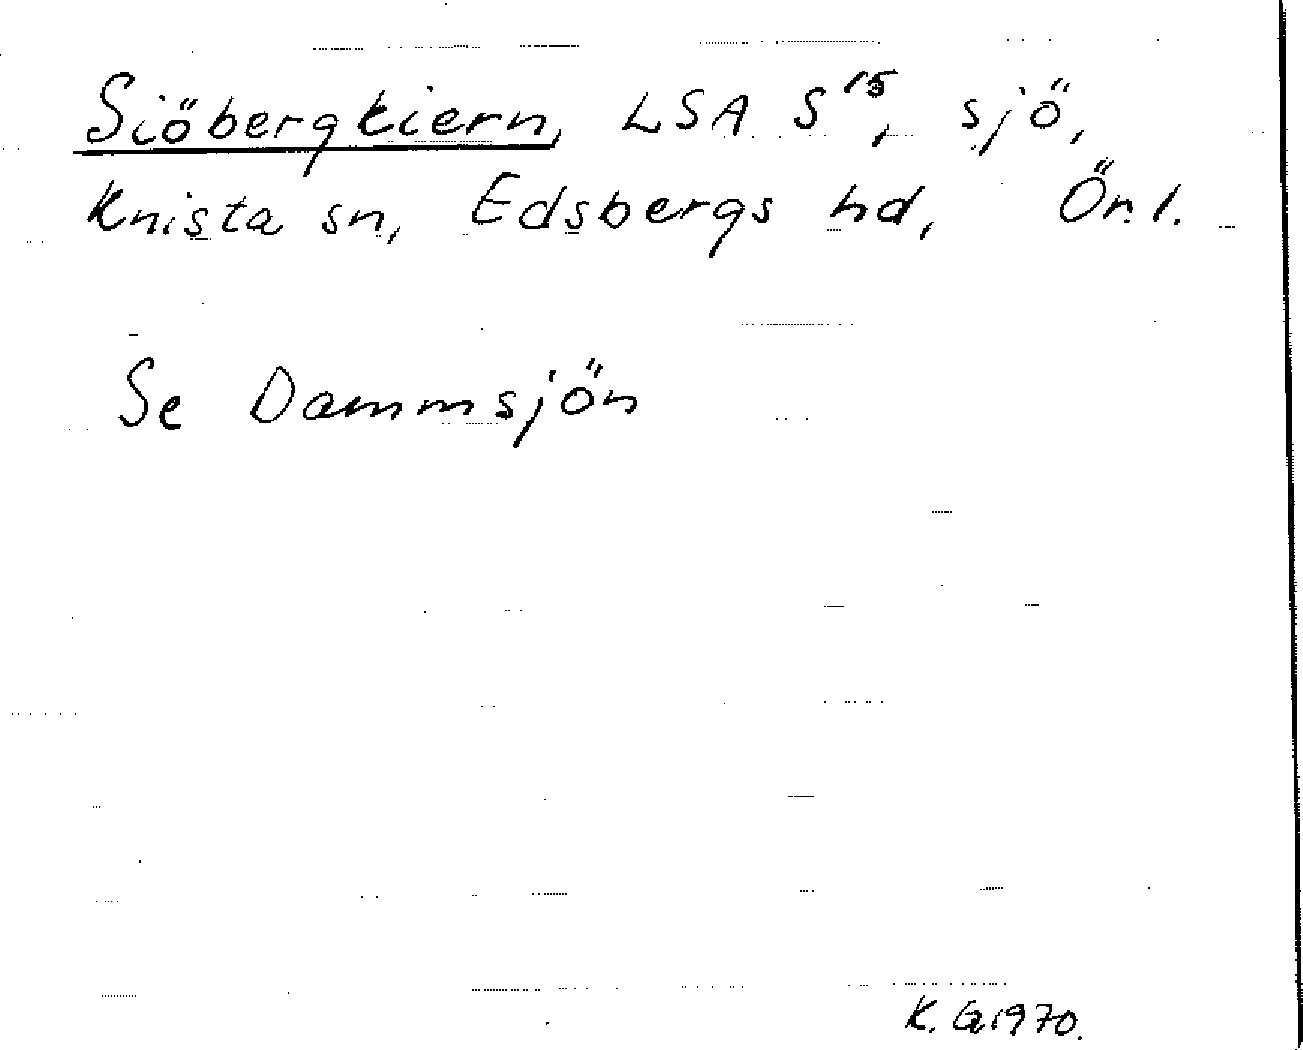 Siöbergkiern, LSA S15, sjö,
Knista sn, Edsbergs hd, Ör. l.
Se Dammsjön
K. G. 1970.